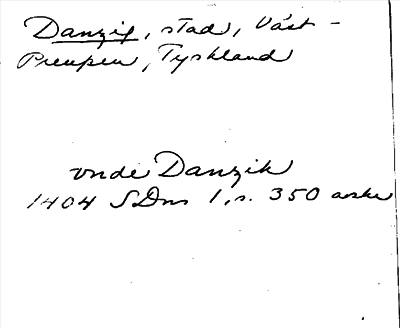 Danzig, stad, Väst-
Preussen, Tyskland
vnde Danzik
1404 SDns 1, s. 350 avskr